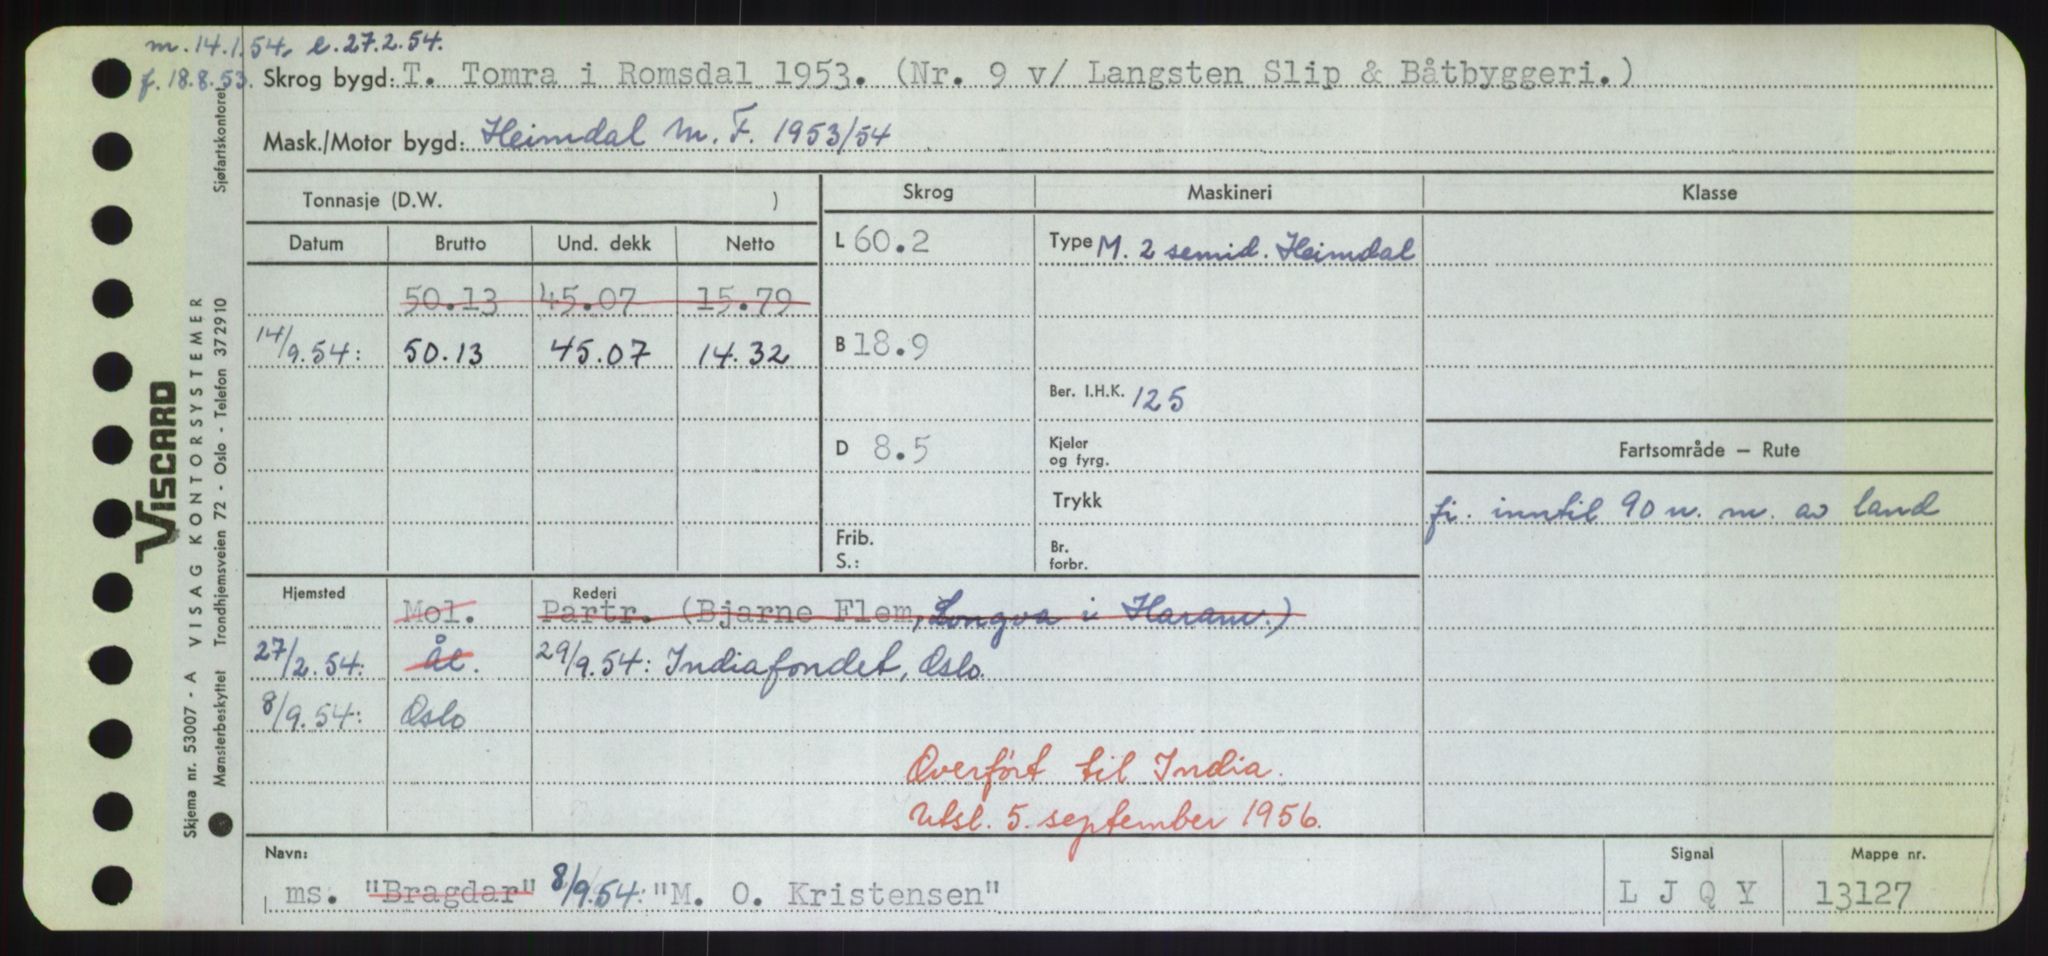 m. 14.1.54. e. 27.2.54.
f. 18.8.53. Skrog bygd: T. Tomra i Romsdal 1953. (Nr. 9 v/ Langsten Slip & Båtbyggeri.)
Mask./Motor bygd: Heimdal M. F. 1953/54
Tonnasje (D.W. ) Skrog Maskineri Klasse
Datum Brutto Und. dekk Netto L 60.2 Type M. 2 semid. Heimdal
50.13 45.07 15.79
14/9.54: 50.13 45.07 14.32 B 18.9
Ber. I.H.K. 125
D 8.5 Kjeler og fyrg. Fartsområde — Rute
Trykk fi. inntil 90 n. m. av land
Frib. S.: Br. forbr.
Hjemsted Rederi
Mol. Partr. (Bjarne Flem, Longva i Haram.)
27/2.54: Ål. 29/9.54: Indiafondet, Oslo.
8/9.54: Oslo
Overført til India.
Utsl. 5. september 1956.
Navn: Signal Mappe nr.
ms. "Bragdar" 8/9.54: "M. O. Kristensen" L J Q Y 13127
Sjøfartskontoret
VISCARD
VISAG KONTORSYSTEMER
Trondhjemsveien 72 - Oslo - Telefon 372910
Skjema nr. 53007 - A
Mønsterbeskyttet